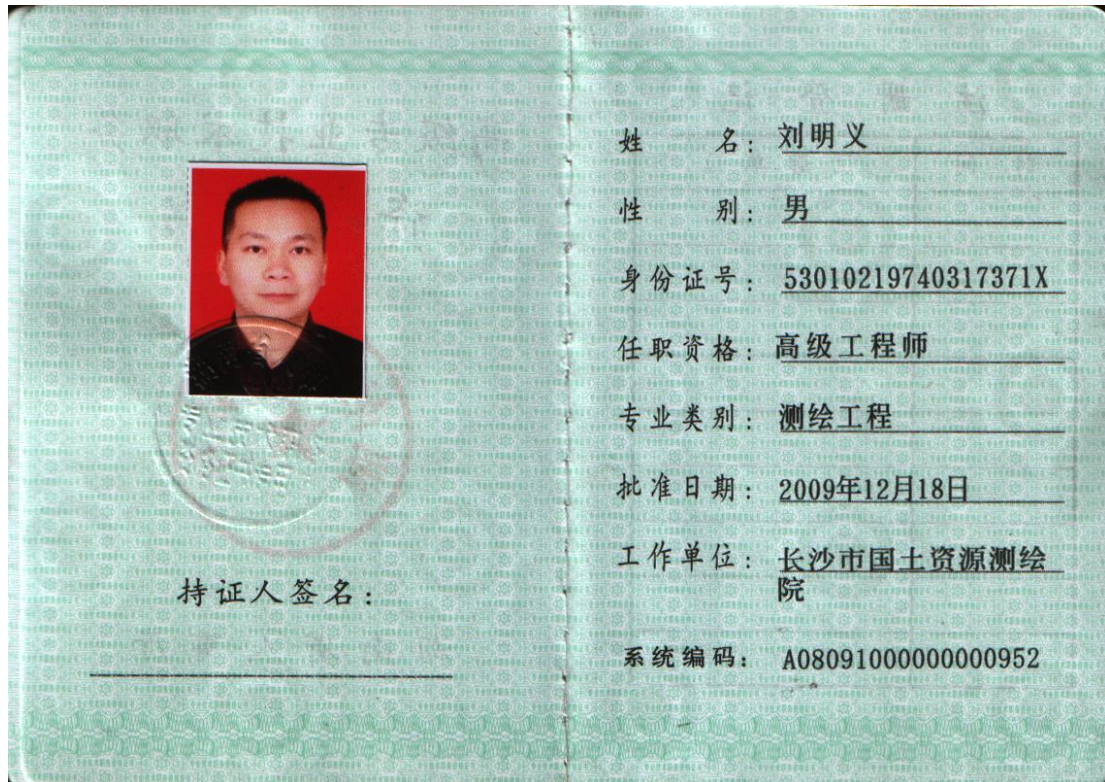 持证人签名：
姓 名：刘明义
性 别：男
身份证号：53010219740317371X
任职资格：高级工程师
专业类别：测绘工程
批准日期：2009年12月18日
工作单位：长沙市国土资源测绘
院
系统编码：A08091000000000952